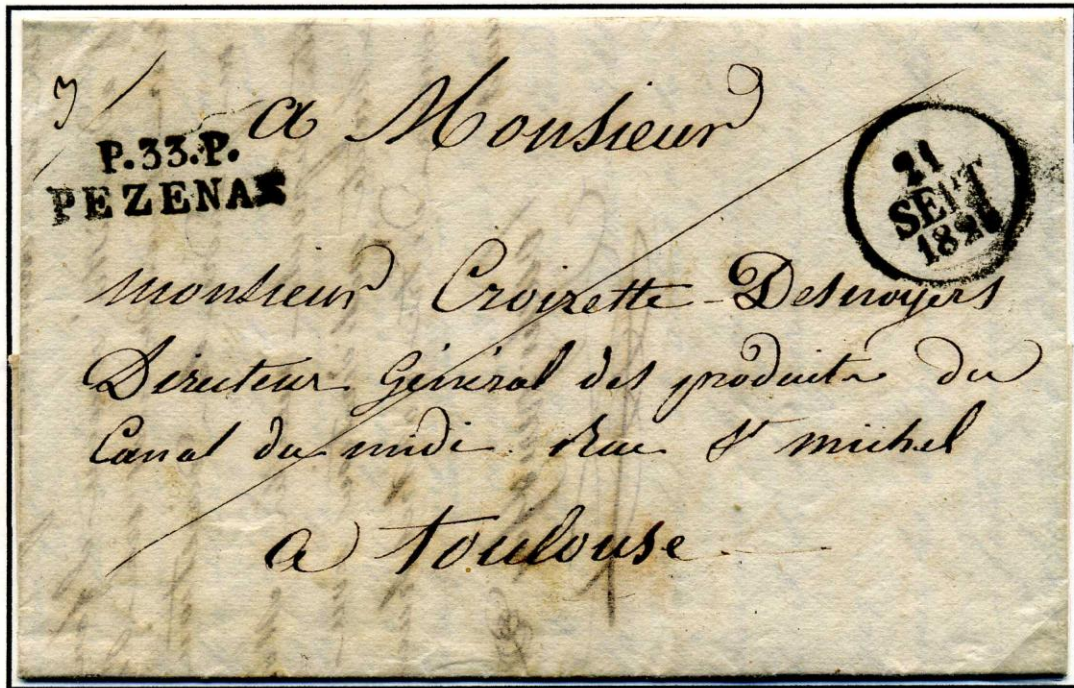 a Monsieur
P.33.P.
PEZENAS
21
SEPT
monsieur Croizette-Desnoyers
Directeur Général des produits du
Canal du midi Rue St michel
a Toulouse